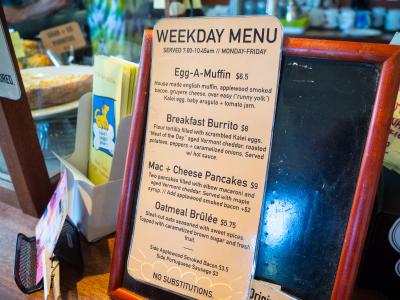 WEEKDAY MENU
SERVED 7:00-10:45am // MONDAY-FRIDAY
Egg-A-Muffin $6.5
House made english muffin, applewood smoked
bacon, gruyere cheese, over easy ("runny yolk")
Kalei egg, baby arugula + tomato jam.
Breakfast Burrito $8
Flour tortilla filled with scrambled Kalei eggs,
"Meat of the Day" aged Vermont cheddar, roasted
potatoes, peppers + caramelized onions. Served
w/ hot sauce.
Mac + Cheese Pancakes $9
Two pancakes filled with elbow macaroni and
aged Vermont cheddar. Served with maple
syrup. / Add applewood smoked bacon +$2
Oatmeal Brûlée $5.75
Steel-cut oats seasoned with sweet spices.
Capped with caramelized brown sugar and fresh
fruit.
Side Applewood Smoked Bacon $3.5
Side Portuguese Sausage $3
NO SUBSTITUTIONS.